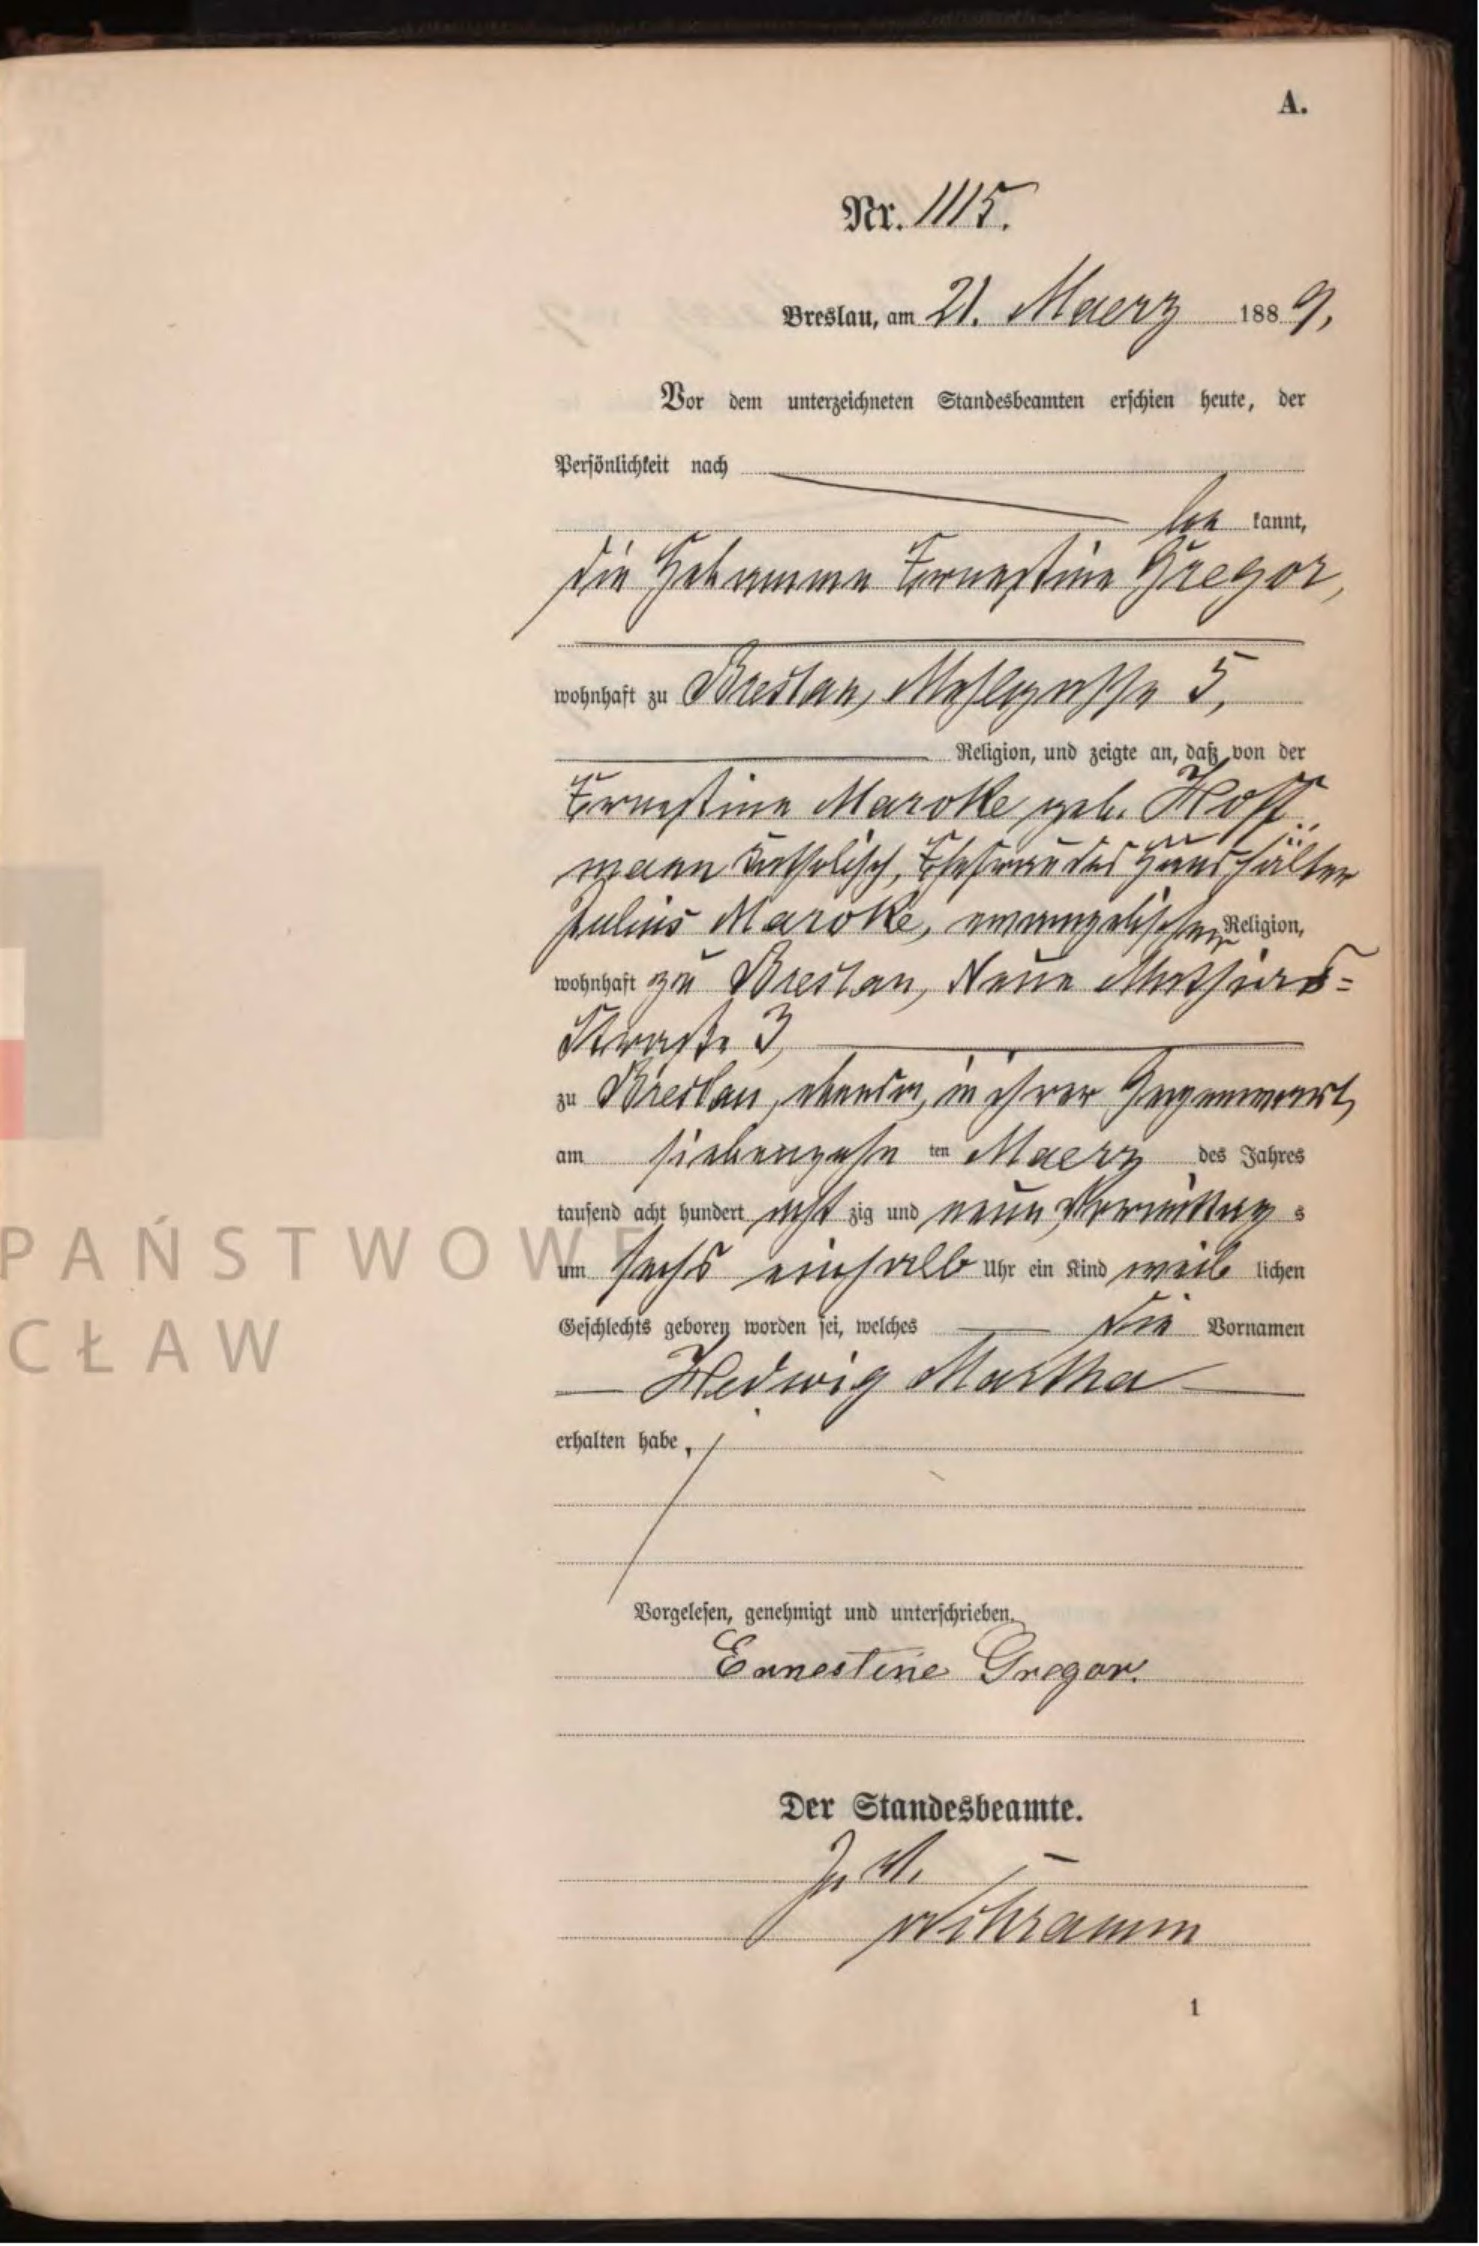 A.
Nr. 1115.
Breslau, am 21. Maerz 1889,
Vor dem unterzeichneten Standesbeamten erschien heute, der
Persönlichkeit nach
be kannt,
die Hebamme Ernestine Gregor,
wohnhaft zu Breslau, Mehlgasse 5,
Religion, und zeigte an, daß von der
Ernestine Maroke geb. Hoff
mann katholisch, Ehefrau des Haushälter
Julius Maroke, evangelischer Religion,
wohnhaft zu Breslau, Neue Mathias-
Straße 3,
zu Breslau, ebenda, in ihrer Gegenwart,
am siebenzehn ten Maerz des Jahres
tausend acht hundert acht zig und neun Vormittag s
um sechs einhalb Uhr ein Kind weib lichen
Geschlechts geboren worden sei, welches die Vornamen
Hedwig Martha
erhalten habe,
Vorgelesen, genehmigt und unterschrieben.
Ernestine Gregor.
Der Standesbeamte.
In V.
1
PAŃSTWOWE
CŁAW